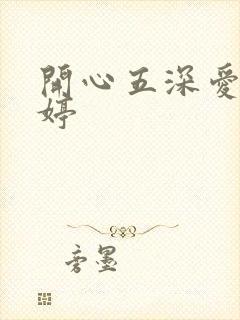 開心五深愛
婷
旁墨